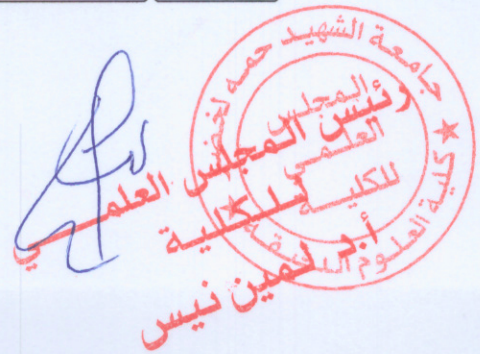 جامعة الشهيد حمه لخضر
كلية العلوم الدقيقة
المجلس
العلمي
للكلية
رئيس المجلس العلمي
للكلية
أ.د لمين نيس